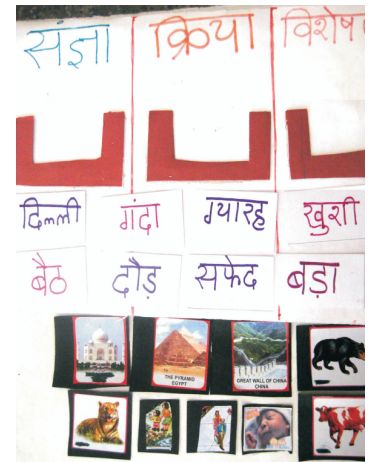 संज्ञा क्रिया विशेष
दिल्ली गंदा ग्यारह खुशी
बैठ दौड़ सफेद बड़ा
THE PYRAMID
EGYPT
GREAT WALL OF CHINA
CHINA